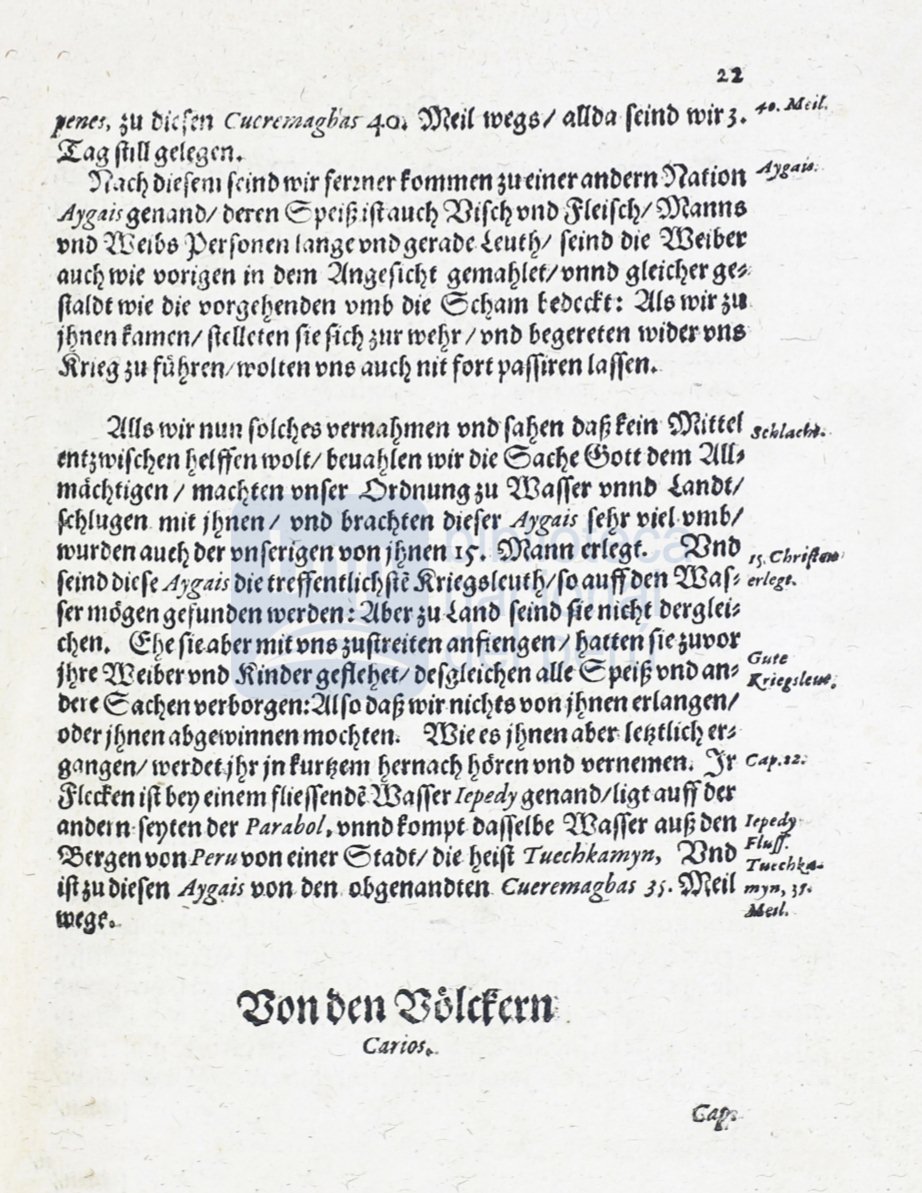 22
penes, zu diesen Cueremagbas 40. Meil wegs/ allda seind wir 3.
40. Meil.
Tag still gelegen.
Nach diesem seind wir ferrner kommen zu einer andern Nation
Aygais.
Aygais genand/ deren Speiß ist auch Visch vnd Fleisch/ Manns
vnd Weibs Personen lange vnd gerade Leuth/ seind die Weiber
auch wie vorigen in dem Angesicht gemahlet/ vnnd gleicher ge-
staldt wie die vorgehenden vmb die Scham bedeckt: Als wir zu
jhnen kamen/ stelleten sie sich zur wehr/ vnd begereten wider vns
Krieg zu führen/ wolten vns auch nit fort passiren lassen.
Alls wir nun solches vernahmen vnd sahen daß kein Mittel
Schlacht.
entzwischen helffen wolt/ beuahlen wir die Sache Gott dem All-
mächtigen/ machten vnser Ordnung zu Wasser vnnd Landt/
schlugen mit jhnen/ vnd brachten dieser Aygais sehr viel vmb/
wurden auch der vnserigen von jhnen 15. Mann erlegt. Vnd
15. Christen
seind diese Aygais die treffentlichstē Kriegsleuth/ so auff den Was-
erlegt.
ser mögen gefunden werden: Aber zu Land seind sie nicht derglei-
chen. Ehe sie aber mit vns zustreiten anfiengen/ hatten sie zuvor
jhre Weiber vnd Kinder geflehet/ desgleichen alle Speiß vnd an-
Gute
Kriegsleut.
dere Sachen verborgen: Also daß wir nichts von jhnen erlangen/
oder jhnen abgewinnen mochten. Wie es jhnen aber letztlich er-
gangen/ werdet jhr jn kurtzem hernach hören vnd vernemen. Jr
Cap. 22.
Flecken ist bey einem fliessendē Wasser Iepedy genand/ ligt auff der
andern seyten der Parabol, vnnd kompt dasselbe Wasser auß den
Iepedy
Fluß.
Bergen von Peru von einer Stadt/ die heist Tuechkamyn, Vnd
Tuechka-
ist zu diesen Aygais von den obgenandten Cueremagbas 35. Meil
myn, 35.
wegs.
Meil.
Von den Völckern
Carios.
Cap.
biblioteca
nacional